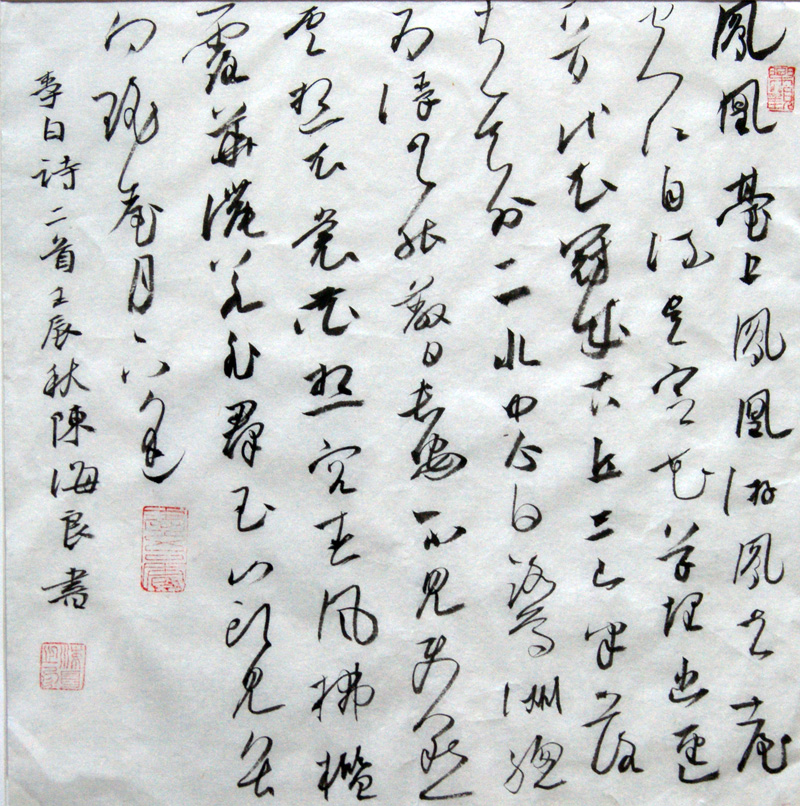 鳳凰臺上鳳凰游鳳去臺
空江自流吳宮花草埋幽徑
晉代衣冠成古丘三山半落
青天外二水中分白鷺洲總
為浮雲能蔽日長安不見使人愁
雲想衣裳花想容春風拂檻
露華濃若非群玉山頭見會
向瑤臺月下逢
李白詩二首壬辰秋陳海良書